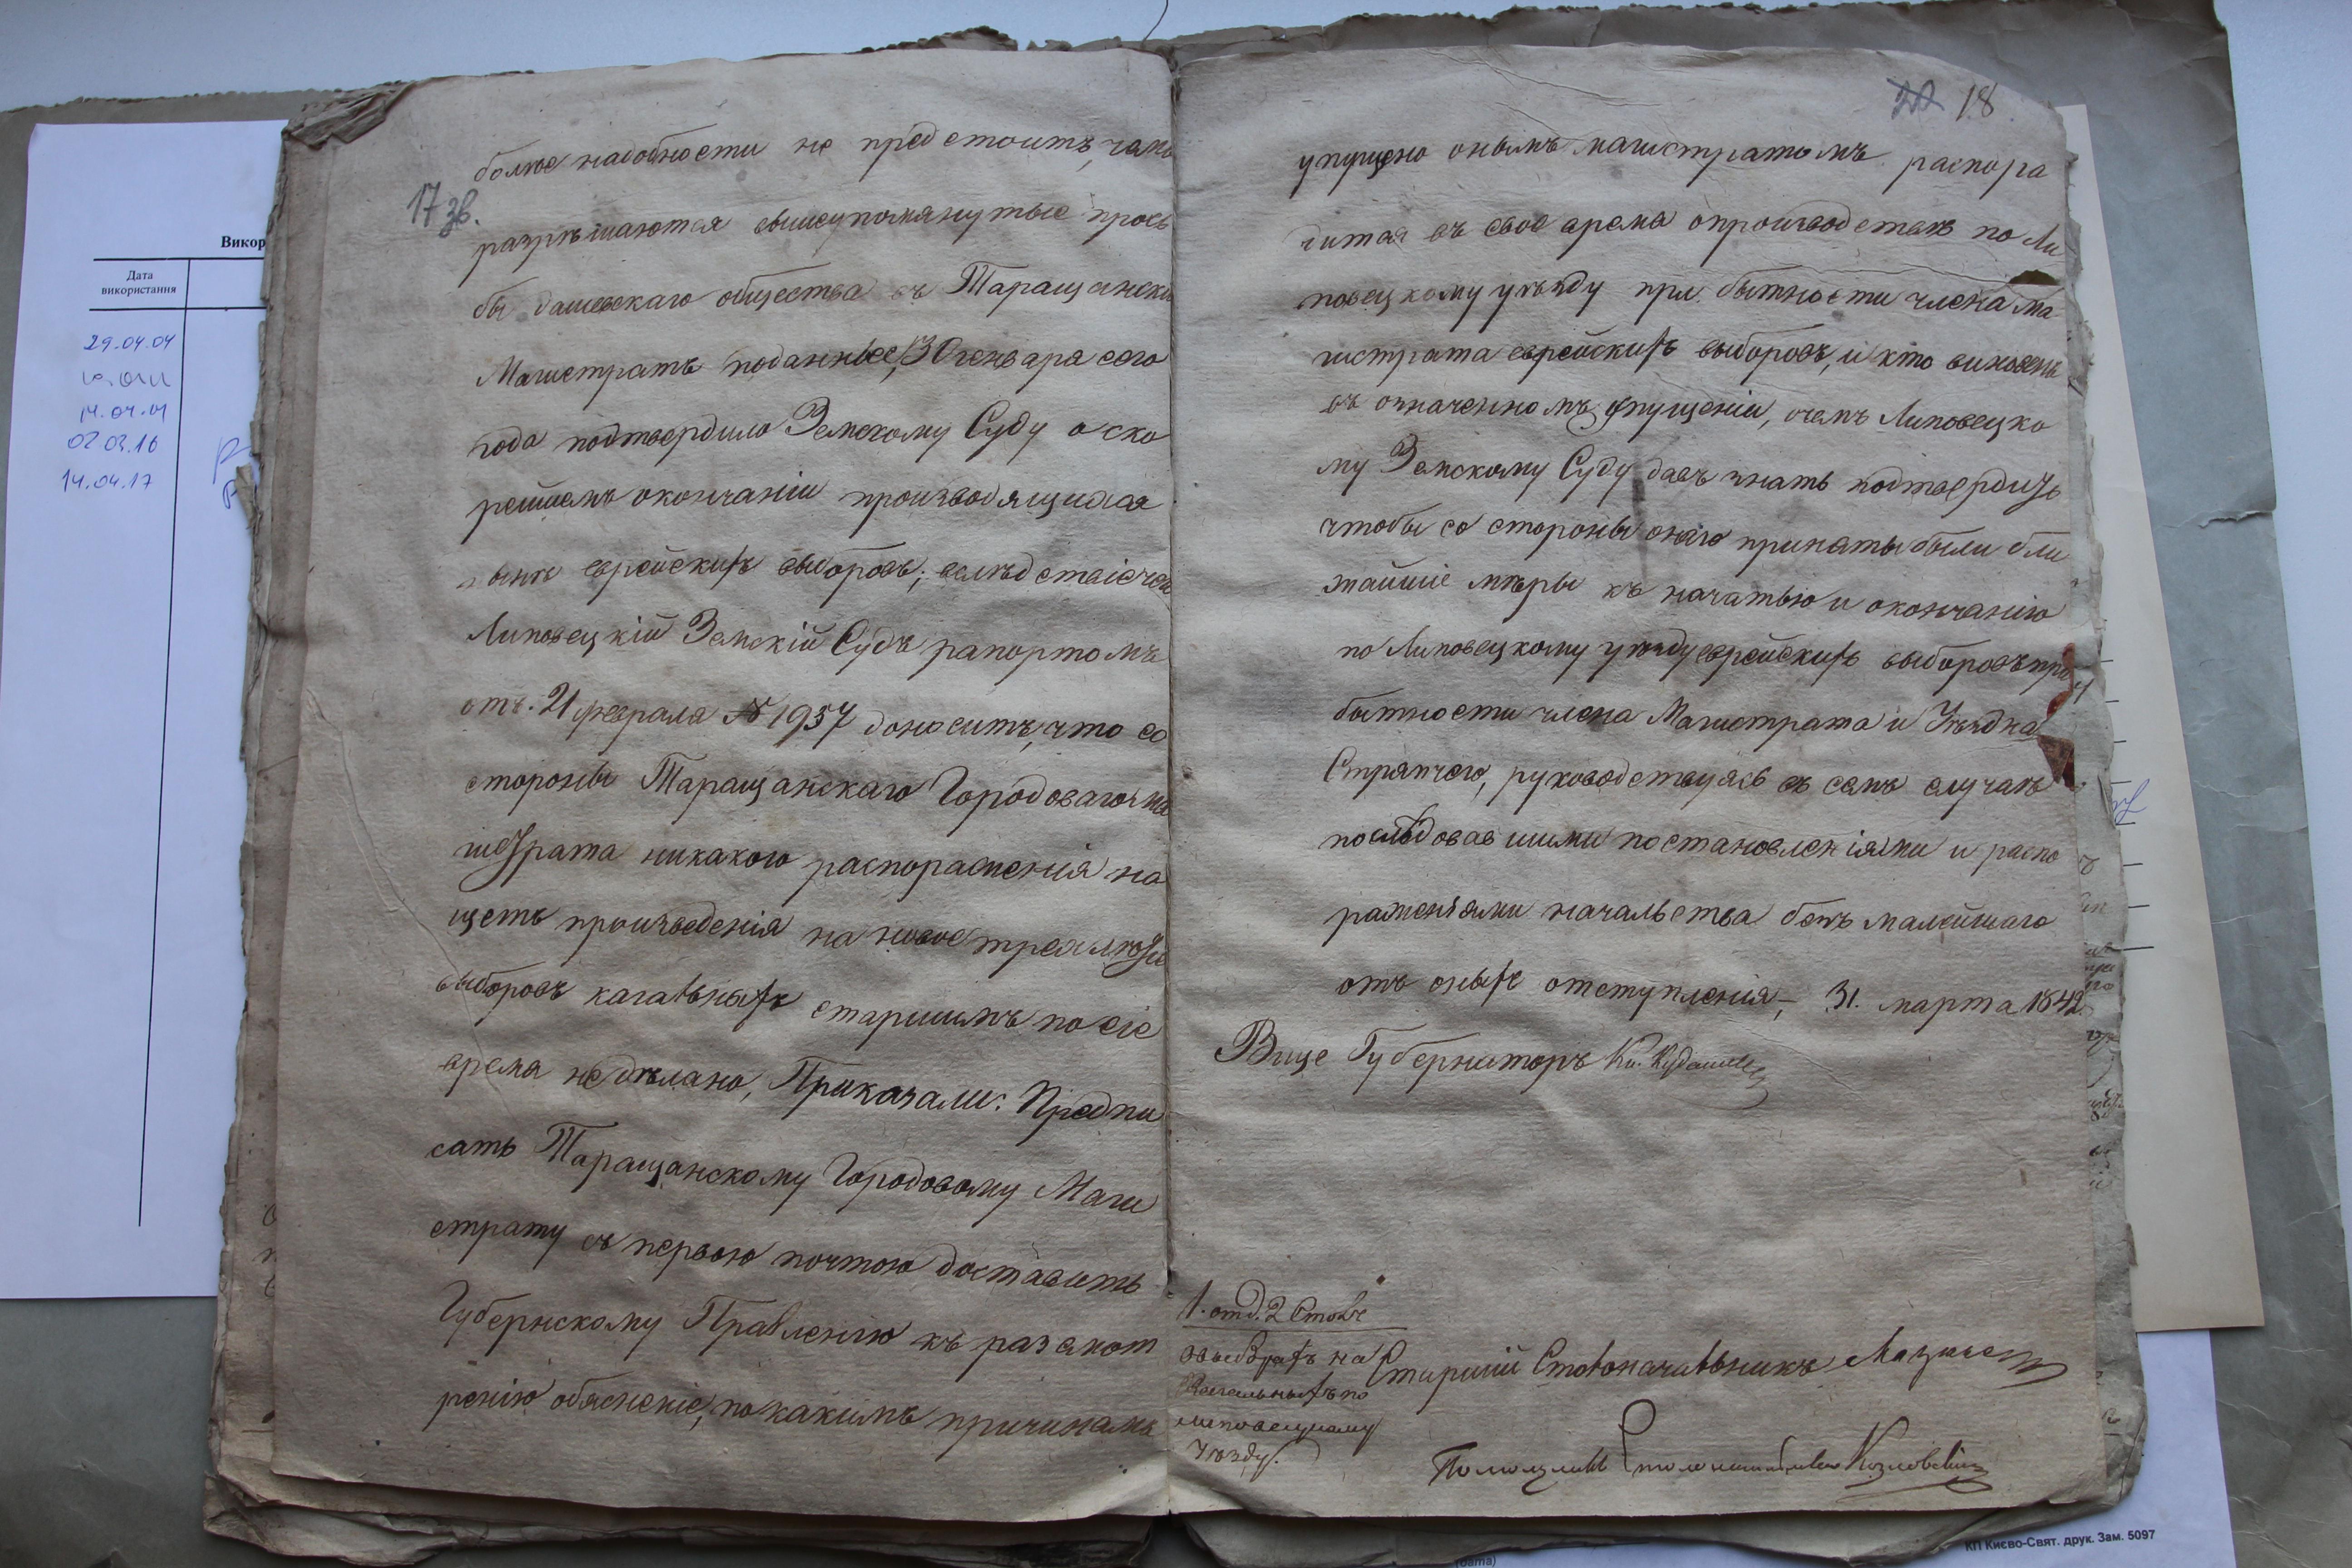 17 зв.
болѣе надобности не предстоитъ, чемъ
разрѣшаются вышеупомянутые прозь
бы дашевскаго общества въ Таращанскій
Магистратъ поданные, 30 генваря сего
года подтвердило Земскому Суду о ско
рейшемъ окончаніи производящихся
нынѣ еврейскихъ выборовъ; вслѣдствіе чего
Липовецкій Земскій Судъ рапортомъ
отъ 21 февраля № 1957 доноситъ, что со
стороны Таращанскаго Городоваго Ма
гистрата никакого распораженія на
щетъ произведенія на новое трехлѣтіе
выборовъ кагальныхъ старшинъ по сіе
время не дѣлано, Приказали: Предпи
сать Таращанскому Городовому Маги
страту съ первою почтою доставить
Губернскому Правленію къ разсмот
ренію обясненіе, по какимъ причинамъ
18
упущено онымъ магистратомъ распора
дится въ свое время о производствѣ по Ли
повецкому уѣзду при бытности члена Ма
гистрата еврейскихъ выборовъ, и кто виновенъ
въ означенномъ упущеніи, о чемъ Липовецко
му Земскому Суду давъ знать подтвердить
чтобы со стороны онаго принаты были бли
жайшіе мѣры къ начатью и окончанію
по Липовецкому уѣзду еврейскихъ выборовъ при
бытности члена Магистрата и Уѣзднаго
Стряпчего, руководствуясь въ семъ случаѣ
последовавшими постановленіями и распо
раженіями начальства безъ малейшаго
отъ оныхъ отступленія, 31. марта 1842.
Вице Губернаторъ Кн. Кудашевъ
1. отд. 2 Столъ
О выборахъ
Кагальныхъ по
Липовецкому
Уѣзду.
Старшій Столоначальникъ
Помощникъ Столоначальника Козловскій
Викор
Дата
використання
29.04.04
14.04.04
02 03.10
14.04.17
(дата)
КП Києво-Свят. друк. Зам. 5097